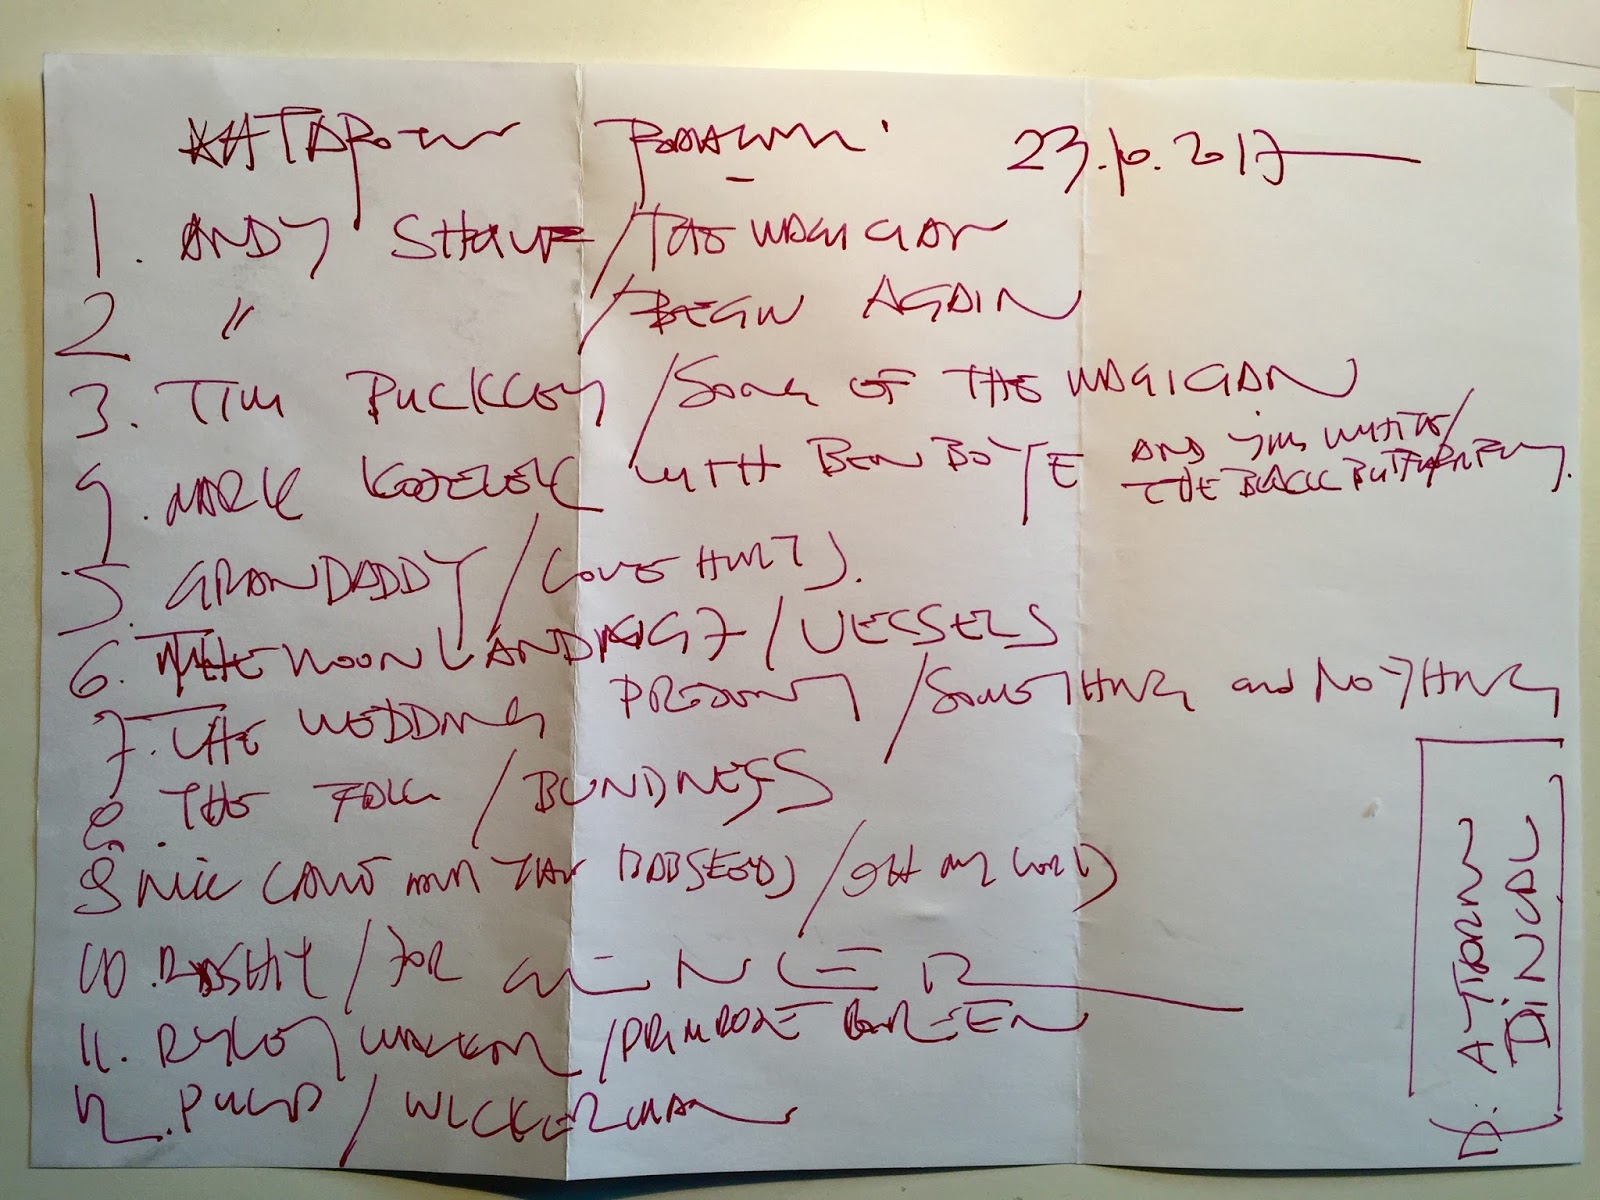 23.10.2017
1. ANDY SHAUF / THE MAGICIAN
2 " / BEGIN AGAIN
3. TIM BUCKLEY / SONG OF THE MAGICIAN
4. MARK KOZELEK WITH BEN BOYE AND JIM WHITE / THE BLACK BUTTERFLY.
5. GRANDADDY / LOVE HURTS.
6. THE MOON LANDINGZ / VESSELS
7. THE WEDDING PRESENT / SOMETHING and NOTHING
8. THE FOLK / BLINDNESS
9 NICK CAVE AND THE BADSEEDS / OH MY LORD
10. / FOR
11. RYLEY WALKER / PRIMROSE GREEN
12. PULP / WICKERMAN
ATTORNO